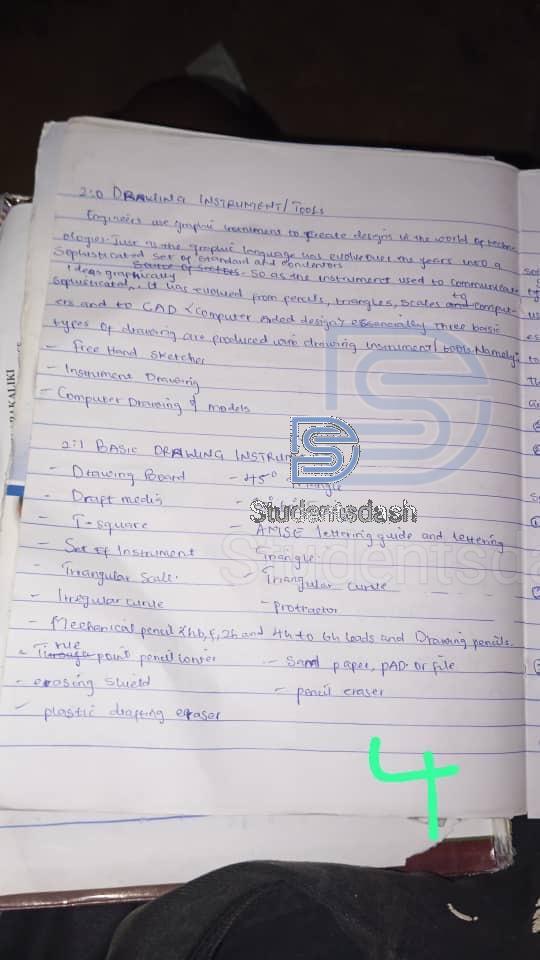 2:0 DRAWING INSTRUMENT/Tools
Engineers use graphic instrument to create designs in the world of techn
ologies. Just as the graphic language has evolve over the years into a
Sophisticated set of standard and conventions
Ideas graphically
. So as the instrument used to communicate
sophisticated, It has evolved from pencils, triangles, scales to comput-
ers and to CAD <computer Aided design> essencially three basic
types of drawing are produced drawing instrument/tools. Namely:
- Free Hand sketches
- Instrument Drawing
- Computer Drawing & models
2:1 BASIC DRAWING INSTRUM
- Drawing Board - 45° triangle
- Draft media
- T-square - AMSE lettering guide and lettering
- Set of Instrument Triangle.
- Triangular Scale. - Triangular curve
- Irregular curve - Protractor
- Mechanical pencil hb, f, 2h and 4h to 6h leads and Drawing pencils.
point pencil - Sand paper, pAD. or file
- erosing shield - pencil eraser
- plastic drafting eraser
Studentsdash
Studentsda
4
DAKALIKI